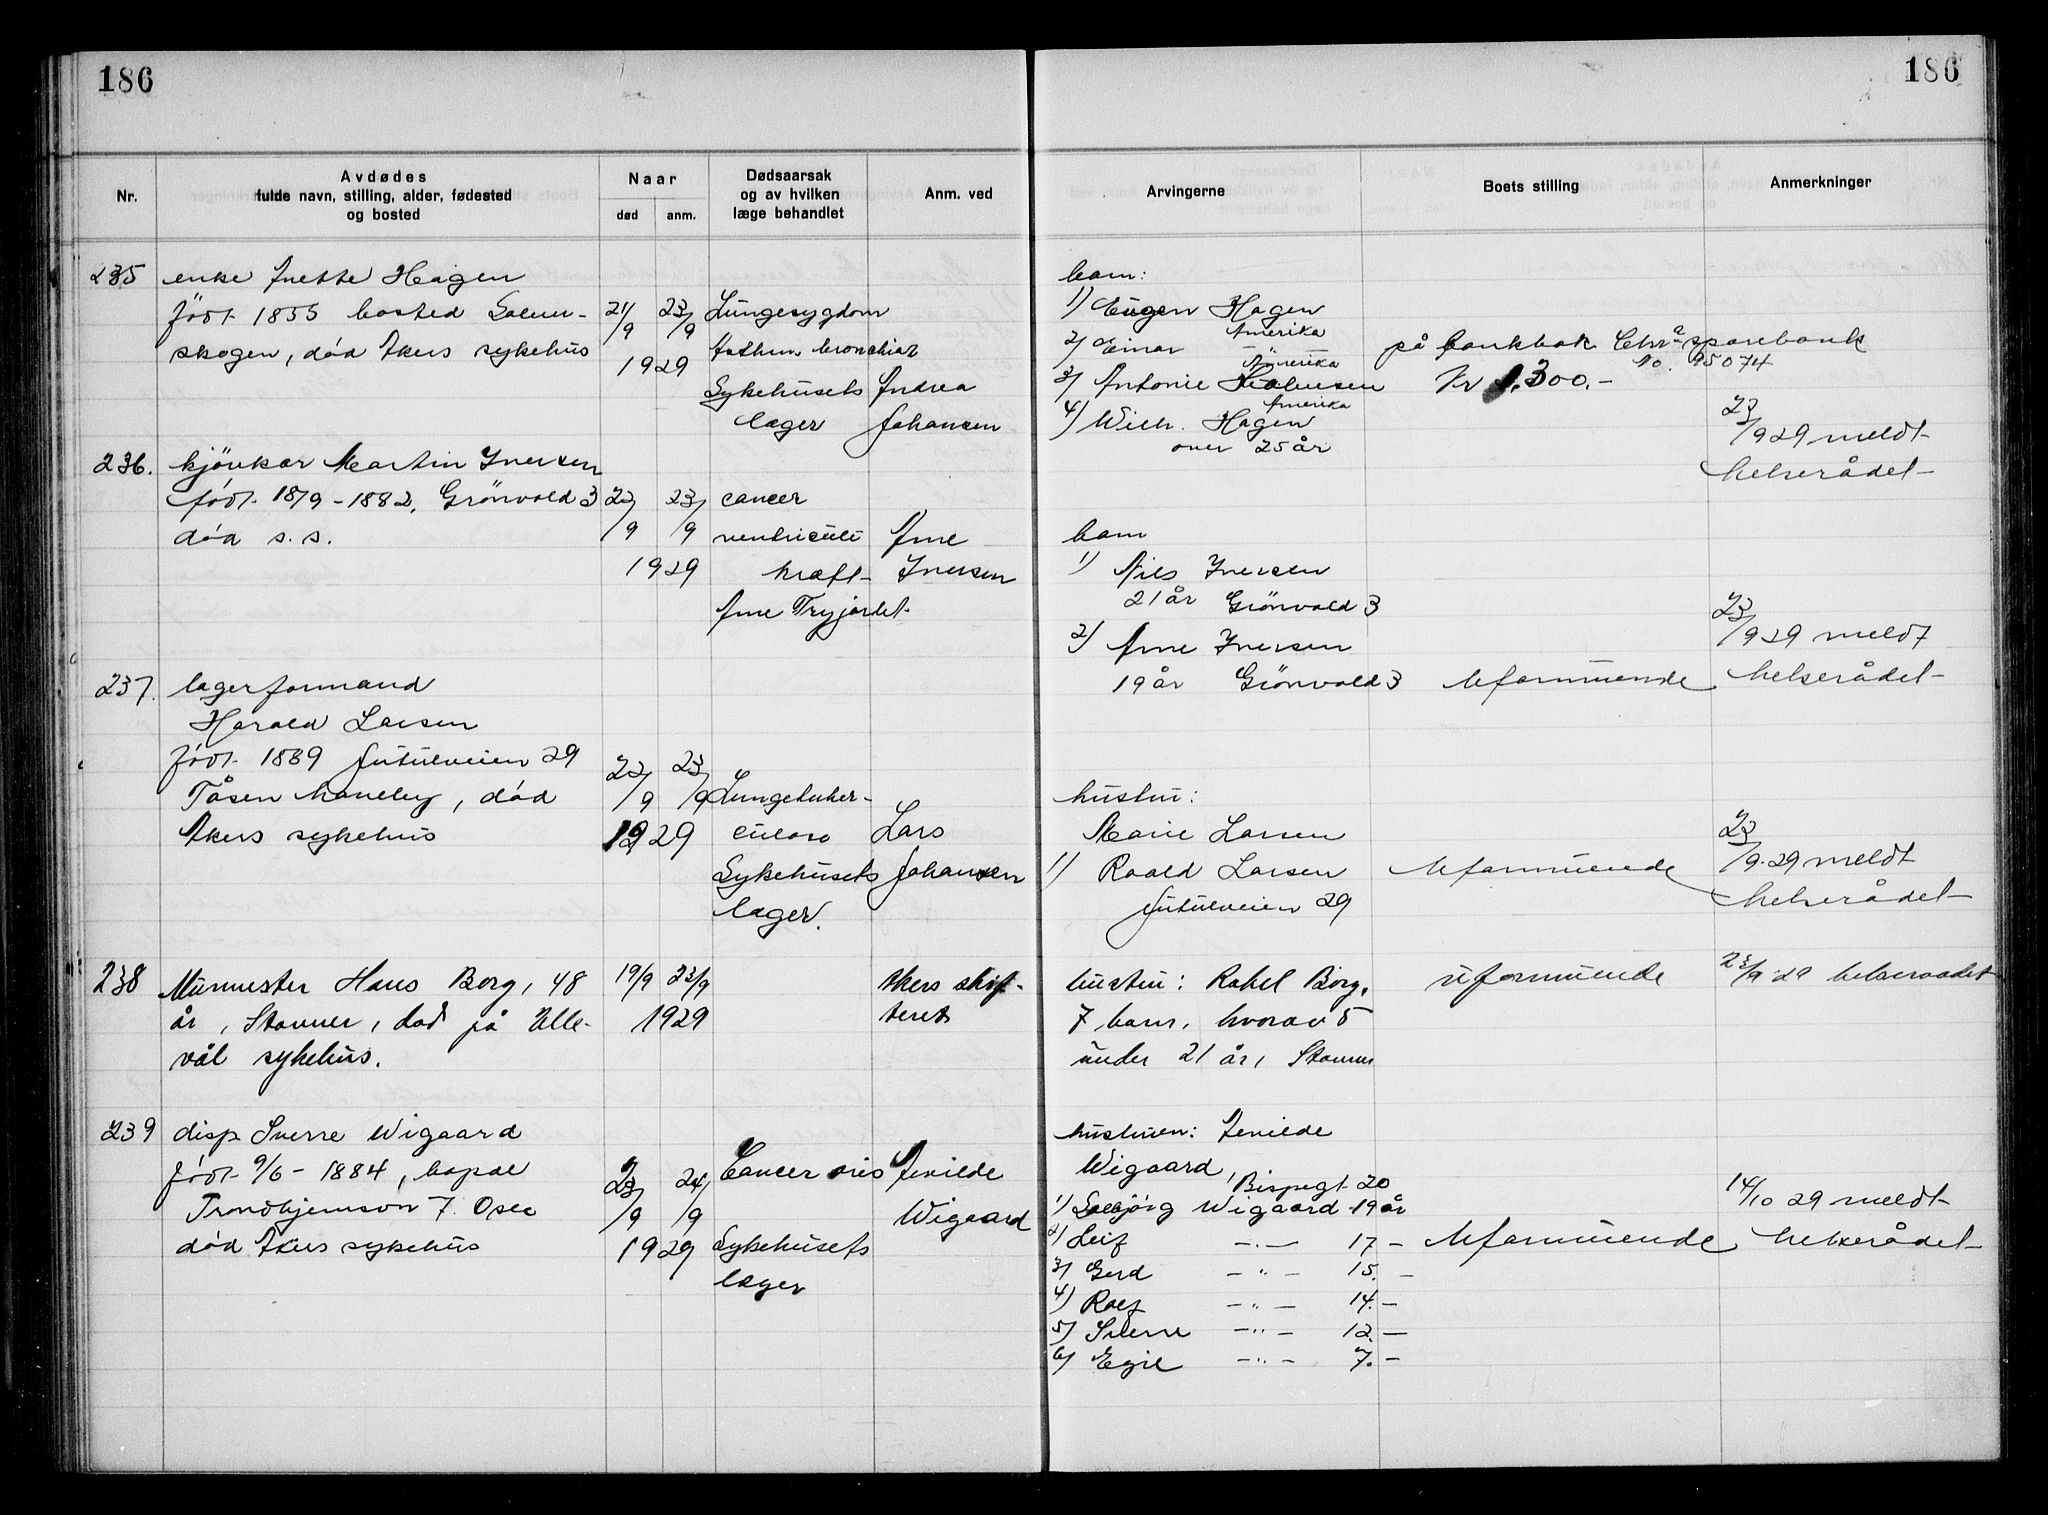 186
186
Nr.
Avdødes
fulde navn, stilling, alder, fødested
og bosted
Naar
død
anm.
Dødsaarsak
og av hvilken
læge behandlet
Anm. ved
Arvingerne
Boets stilling
Anmerkninger
235
enke Inette Hagen
født 1855 bosted Solem-
skogen, død Akers sykehus
21/9 23/9
1929
Lungesygdom
Asthm bronchiar
Sykehusets
læger
Andrea
Johansen
barn:
1) Eugen Hagen
Amerika
2) Einar —
Amerika
3) Antonie
Amerika
4) Wilh. Hagen
over 25 år
på bankbok Chra sparebank
No. 95074
Kr 1.300.-
23/9 29 meldt
helserådet
236.
kjørekar Martin Iversen
født 18/9-1882, Grönvold 3
død s.s.
22/9 23/9
1929
cancer
ventriculi
kræft
Arne Tryjordet
Arne
Iversen
barn
1) Nils Iversen
21 år Grönvold 3
2) Arne Iversen
19 år Grönvold 3
Uformuende
23/9 29 meldt
helserådet
237.
lagerformand
Harald Larsen
født 1889 Jutulveien 29
Tåsen haveby, død
Akers sykehus
22/9 23/9
1929
Lungetuber-
culose
Sykehusets
læger.
Lars
Johansen
hustru:
Marie Larsen
1) Roald Larsen
Jutulveien 29
Uformuende
23/9-29 meldt
helserådet
238
Murmester Hans Borg, 48
år, Stovner, død på Ulle-
vål sykehus.
19/9 23/9
1929
Akers skif-
teret
hustru: Rakel Borg,
7 barn, hvorav 5
under 21 år, Stovner
uformuende
23/9 29 helseraadet
239
disp Sverre Wigaard
født 9/6-1884, bopæl
Trondhjemsvn 7. Oslo
død Akers sykehus
23/9 24/9
1929
Cancer oris
Sykehusets
læger
Wigaard
hustruen:
Wigaard, Bispegt 20
1) Solbjörg Wigaard 19 år
2) Leif —"— 17 —
3) Gerd —"— 15. —
4) Rolf —"— 14. —
5) Sverre —"— 12. —
6) Egil —"— 7. —
Uformuende
14/10 29 meldt
helserådet